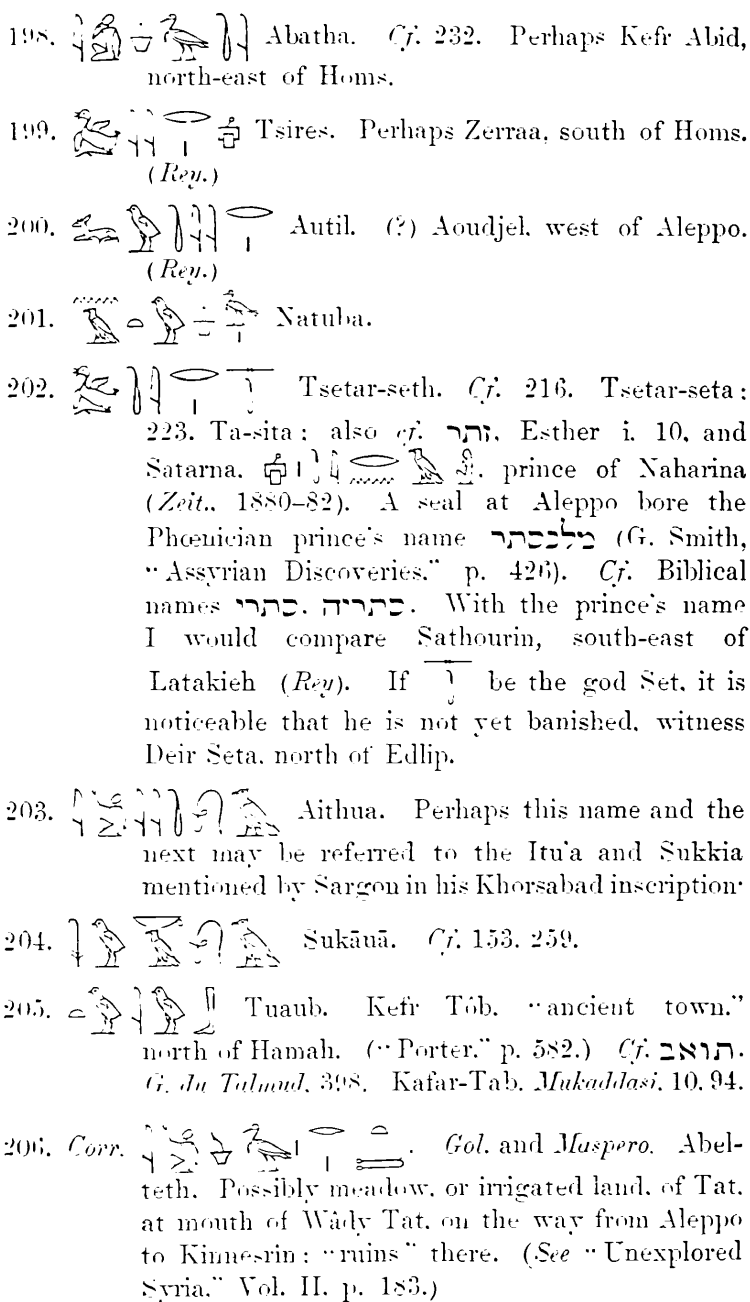 198. Abatha. Cf. 232. Perhaps Kefr Abid,
north-east of Homs.
199. Tsires. Perhaps Zerraa, south of Homs.
(Rey.)
200. Autil. (?) Aoudjel, west of Aleppo.
(Rey.)
201. Natuba.
202. Tsetar-seth. Cf. 216. Tsetar-seta;
223. Ta-sita; also cf. זתר, Esther i. 10, and
Satarna, prince of Naharina
(Zeit., 1880–82). A seal at Aleppo bore the
Phœnician prince's name מלכסתר (G. Smith,
"Assyrian Discoveries," p. 426). Cf. Biblical
names סתרי, סתריה. With the prince's name
I would compare Sathourin, south-east of
Latakieh (Rey). If be the god Set, it is
noticeable that he is not yet banished, witness
Deir Seta, north of Edlip.
203. Aithua. Perhaps this name and the
next may be referred to the Itu'a and Sukkia
mentioned by Sargon in his Khorsabad inscription.
204. Sukāuā. Cf. 153, 259.
205. Tuaub. Kefr Tôb, "ancient town,"
north of Hamah. ("Porter," p. 582.) Cf. תואב.
G. du Talmud, 398. Kafar-Tab. Mukaddasi, 10, 94.
206. Corr. Gol. and Maspero. Abel-
teth. Possibly meadow, or irrigated land, of Tat,
at mouth of Wâdy Tat, on the way from Aleppo
to Kinnesrin; "ruins" there. (See "Unexplored
Syria," Vol. II. p. 183.)